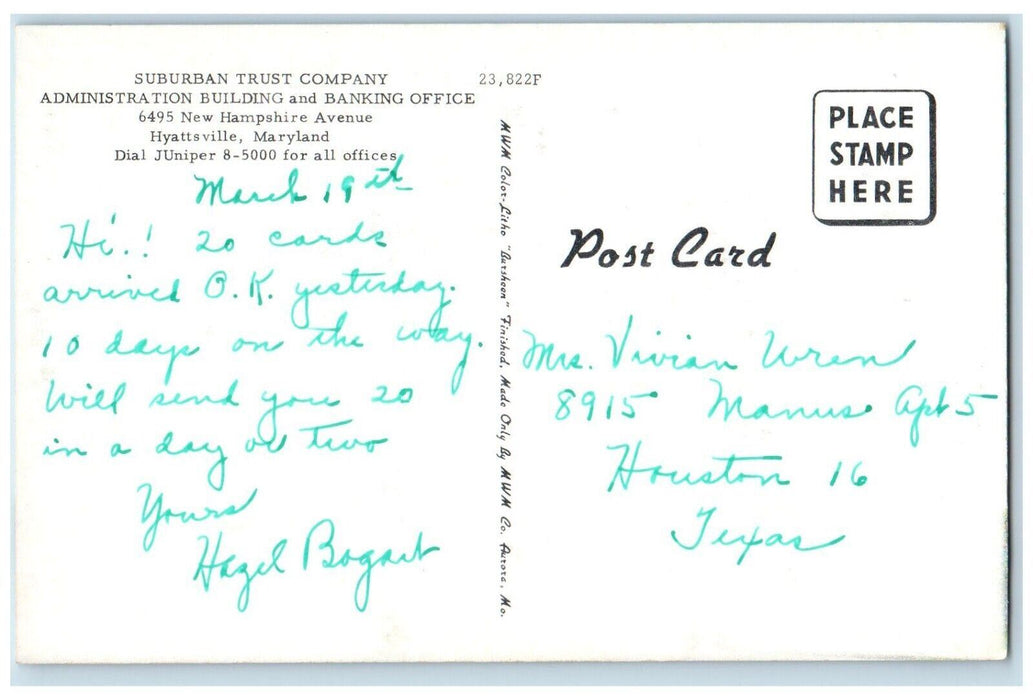 SUBURBAN TRUST COMPANY
ADMINISTRATION BUILDING and BANKING OFFICE
6495 New Hampshire Avenue
Hyattsville, Maryland
Dial JUniper 8-5000 for all offices
23,822F
March 19th
Hi! 20 cards
arrived O.K. yesterday.
10 days on the way.
Will send you 20
in a day or two
Yours
Hazel Bogart
MWM Color-Litho "Bursheen" Finished, Made Only By MWM Co. Aurora, Mo.
PLACE
STAMP
HERE
Post Card
Mrs. Vivian Wren
8915 Manus Apt 5
Houston 16
Texas